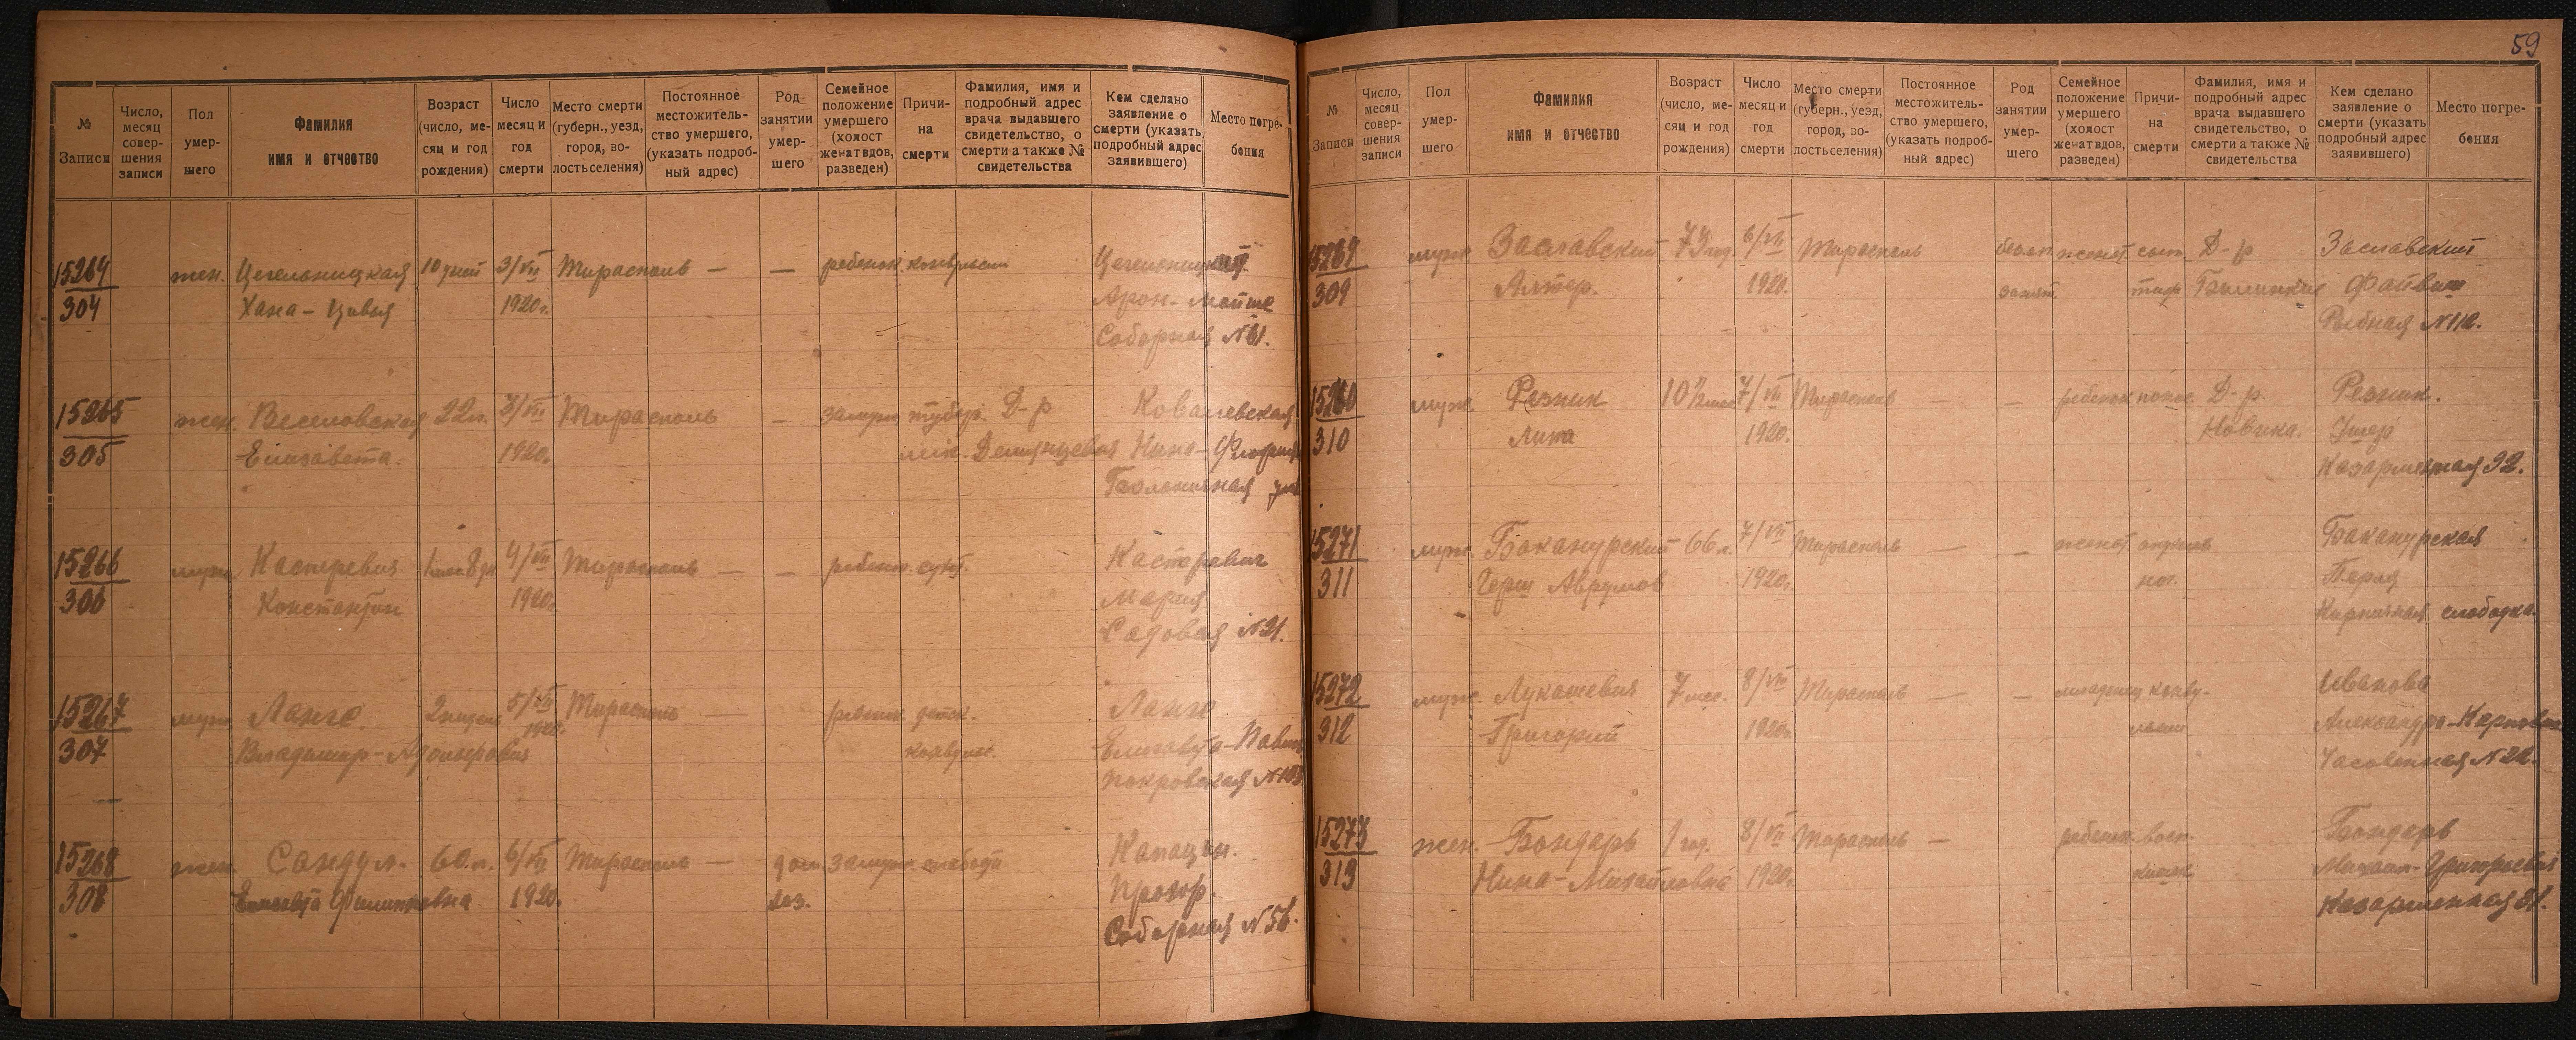 59
№ Записи
Число, месяц совершения записи
Пол умершего
Фамилия имя и отчество
Возраст (число, месяц и год рождения)
Число месяц и год смерти
Место смерти (губерн., уезд, город, волость селения)
Постоянное местожительство умершего, (указать подробный адрес)
Род занятии умершего
Семейное положение умершего (холост женат вдов, разведен)
Причина смерти
Фамилия, имя и подробный адрес врача выдавшего свидетельство, о смерти а также № свидетельства
Кем сделано заявление о смерти (указать подробный адрес заявившего)
Место погребения
15264 жен. Цегельницкая 10 дней 3/VII Тирасполь — — ребенок конвульсии Цегельницкий
304 Хана-Цивья 1920г. Арон-Мойше
Соборная №
15265 жен. Веселовская 22л. 3/VII Тирасполь — замуж. тубер. Д-р Ковалевская
305 Елизавета. 1920г. Демянцевич Нина-
Больничная ул
15266 муж. Кастревич 4/VII Тирасполь — — ребенок Кастревич
306 Константин 1920г. Мария
Садовая №21.
15267 муж. Ланге 5/VII Тирасполь — ребенок детск. Ланге
307 Владимир- 1920г. конвульс. Елизавета-
Покровская
15268 жен. Сандул. 60.л. 6/VII Тирасполь — дом. замуж. слабость
308 Елизавета Филипповна 1920. хоз. Прохор.
Соборная №
№ Записи
Число, месяц совершения записи
Пол умершего
Фамилия имя и отчество
Возраст (число, месяц и год рождения)
Число месяц и год смерти
Место смерти (губерн., уезд, город, волость селения)
Постоянное местожительство умершего, (указать подробный адрес)
Род занятии умершего
Семейное положение умершего (холост женат вдов, разведен)
Причина смерти
Фамилия, имя и подробный адрес врача выдавшего свидетельство, о смерти а также № свидетельства
Кем сделано заявление о смерти (указать подробный адрес заявившего)
Место погребения
15269 муж. Заславский 73 6/VII Тирасполь женат сып. Д-р Заславский
309 Алтер. 1920. занят. тиф Файвиш
Рыбная
муж. Резник 7/VII Тирасполь — — ребенок понос Д-р. Резник.
310 Липа 1920. Новика. Ушер
Казарменная 92.
15271 муж. Баканурский 66л. 7/VII Тирасполь — — женат Баканурская
311 Герш Аврумов 1920г. ног. Перля
Кирпичная слободка.
15272 муж. Лукашевич 7 мес. 8/VII Тирасполь — — младенец конву- Иванова
312 Григорий 1920г. льсии Александра-Карповна
Часовенная №22.
15273 жен. Бондарь 1 год. 8/VII Тирасполь — ребенок восп. Бондарь
313 Нина-Михайловна 1920г. кишек Михаил-Григорьевич
Казарменная